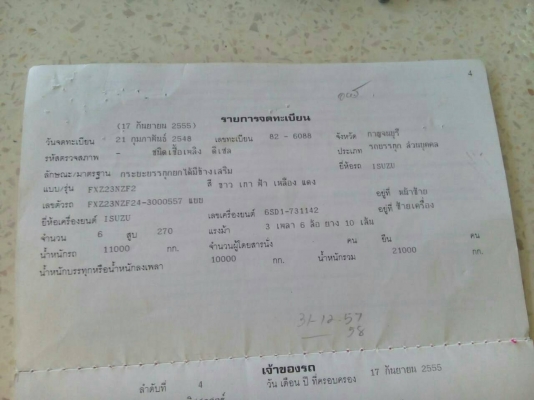 4
รายการจดทะเบียน
(17 กันยายน 2555)
วันจดทะเบียน - 21 กุมภาพันธ์ 2548 เลขทะเบียน 82 - 6088 จังหวัด กาญจนบุรี
รหัสตรวจสภาพ - ชนิดเชื้อเพลิง ดีเซล ประเภท รถบรรทุก ส่วนบุคคล
ลักษณะ/มาตรฐาน กระบะบรรทุกยกได้มีข้างเสริม ยี่ห้อรถ ISUZU
แบบ/รุ่น FXZ23NZF2 สี ขาว เทา ฟ้า เหลือง แดง
เลขตัวรถ FXZ23NZF24-3000557 &DD อยู่ที่ หน้าซ้าย
ยี่ห้อเครื่องยนต์ ISUZU เลขเครื่องยนต์ 6SD1-731142 อยู่ที่ ซ้ายเครื่อง
จำนวน 6 สูบ 270 แรงม้า 3 เพลา 6 ล้อ ยาง 10 เส้น
น้ำหนักรถ 11000 กก. จำนวนผู้โดยสารนั่ง คน ยืน คน
น้ำหนักบรรทุกหรือน้ำหนักลงเพลา 10000 กก. น้ำหนักรวม 21000 กก.
31-12-57
58
เจ้าของรถ
ลำดับที่ 4 วัน เดือน ปี ที่ครอบครอง 17 กันยายน 2555